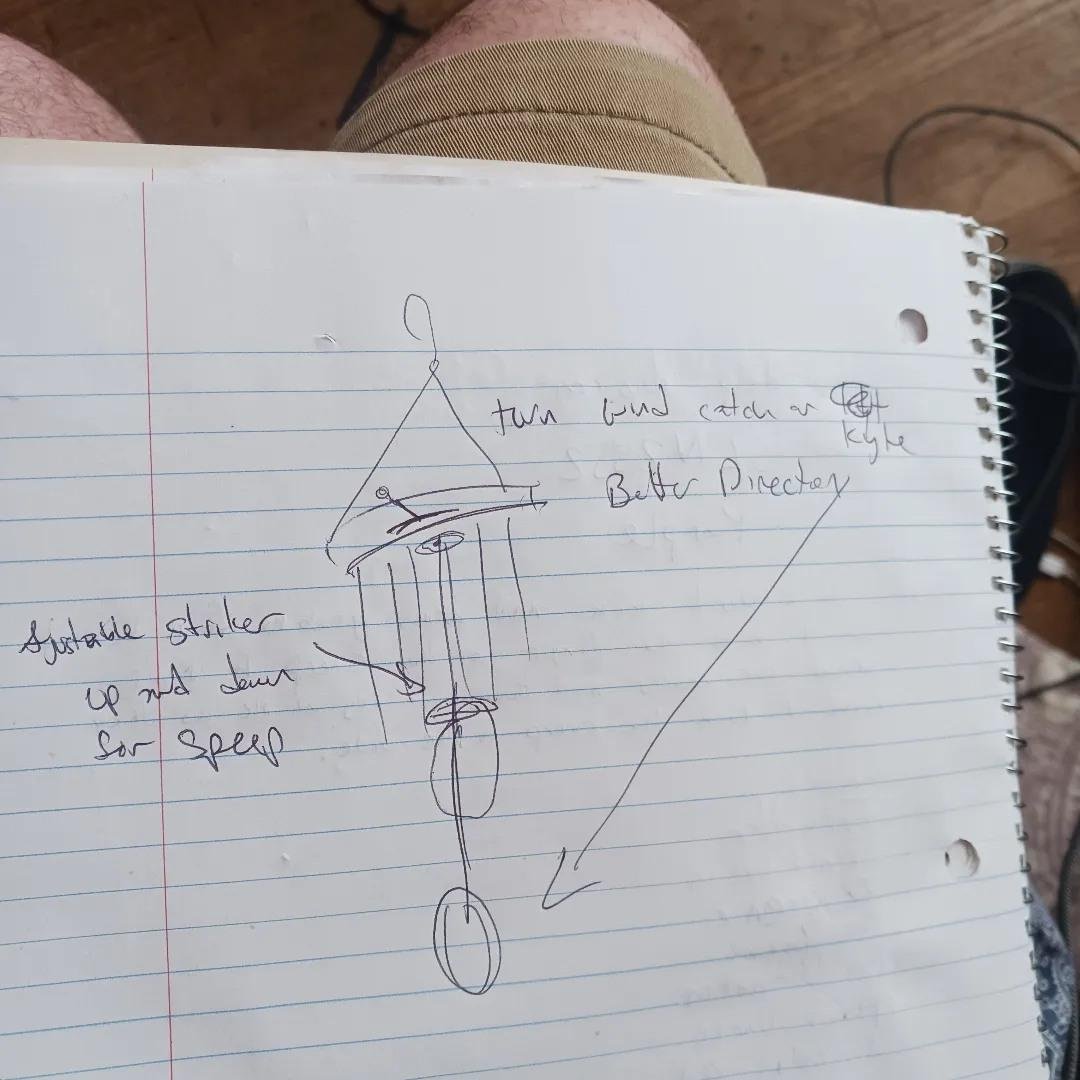 turn wind catch or
Kyte
Better Direction
Ajustable striker
up and down
for speep